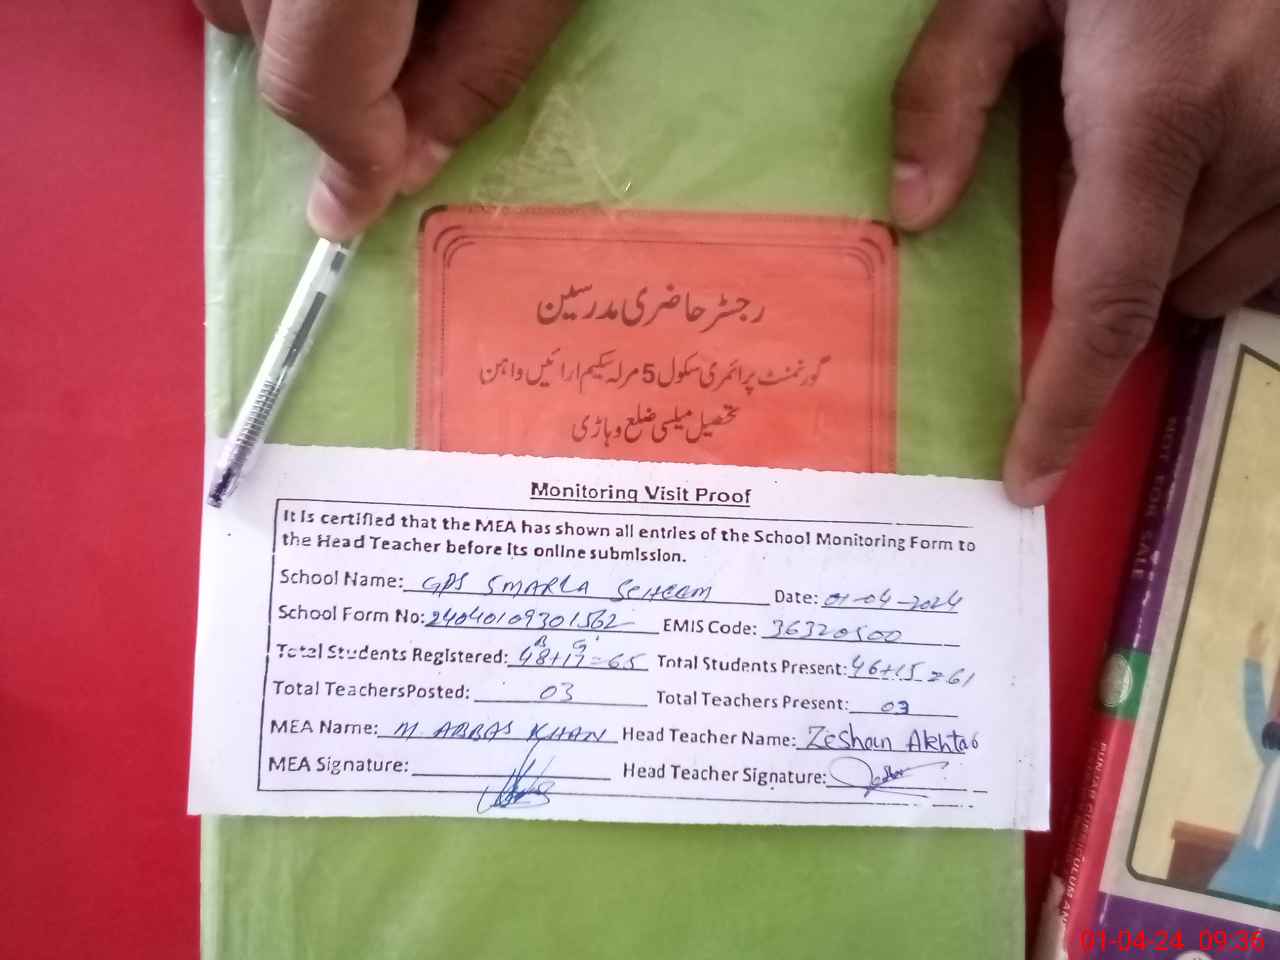 رجسٹر حاضری مدرسین
گورنمنٹ پرائمری سکول 5 مرلہ سکیم ارائیں واہن
تحصیل میلسی ضلع وہاڑی
Monitoring Visit Proof
It is certified that the MEA has shown all entries of the School Monitoring Form to
the Head Teacher before its online submission.
School Name: GPS 5MARLA SCHEEM Date: 01-04-2024
School Form No: 24040109301562 EMIS Code: 36320500
B G
Total Students Registered: 48+17=65 Total Students Present: 46+15=61
Total TeachersPosted: 03 Total Teachers Present: 03
MEA Name: M. ABBAS KHAN Head Teacher Name: Zeshan Akhtab
MEA Signature: Head Teacher Signature:
NOT FOR SALE
PUNJAB CURRICULUM AN
01-04-24 09:36